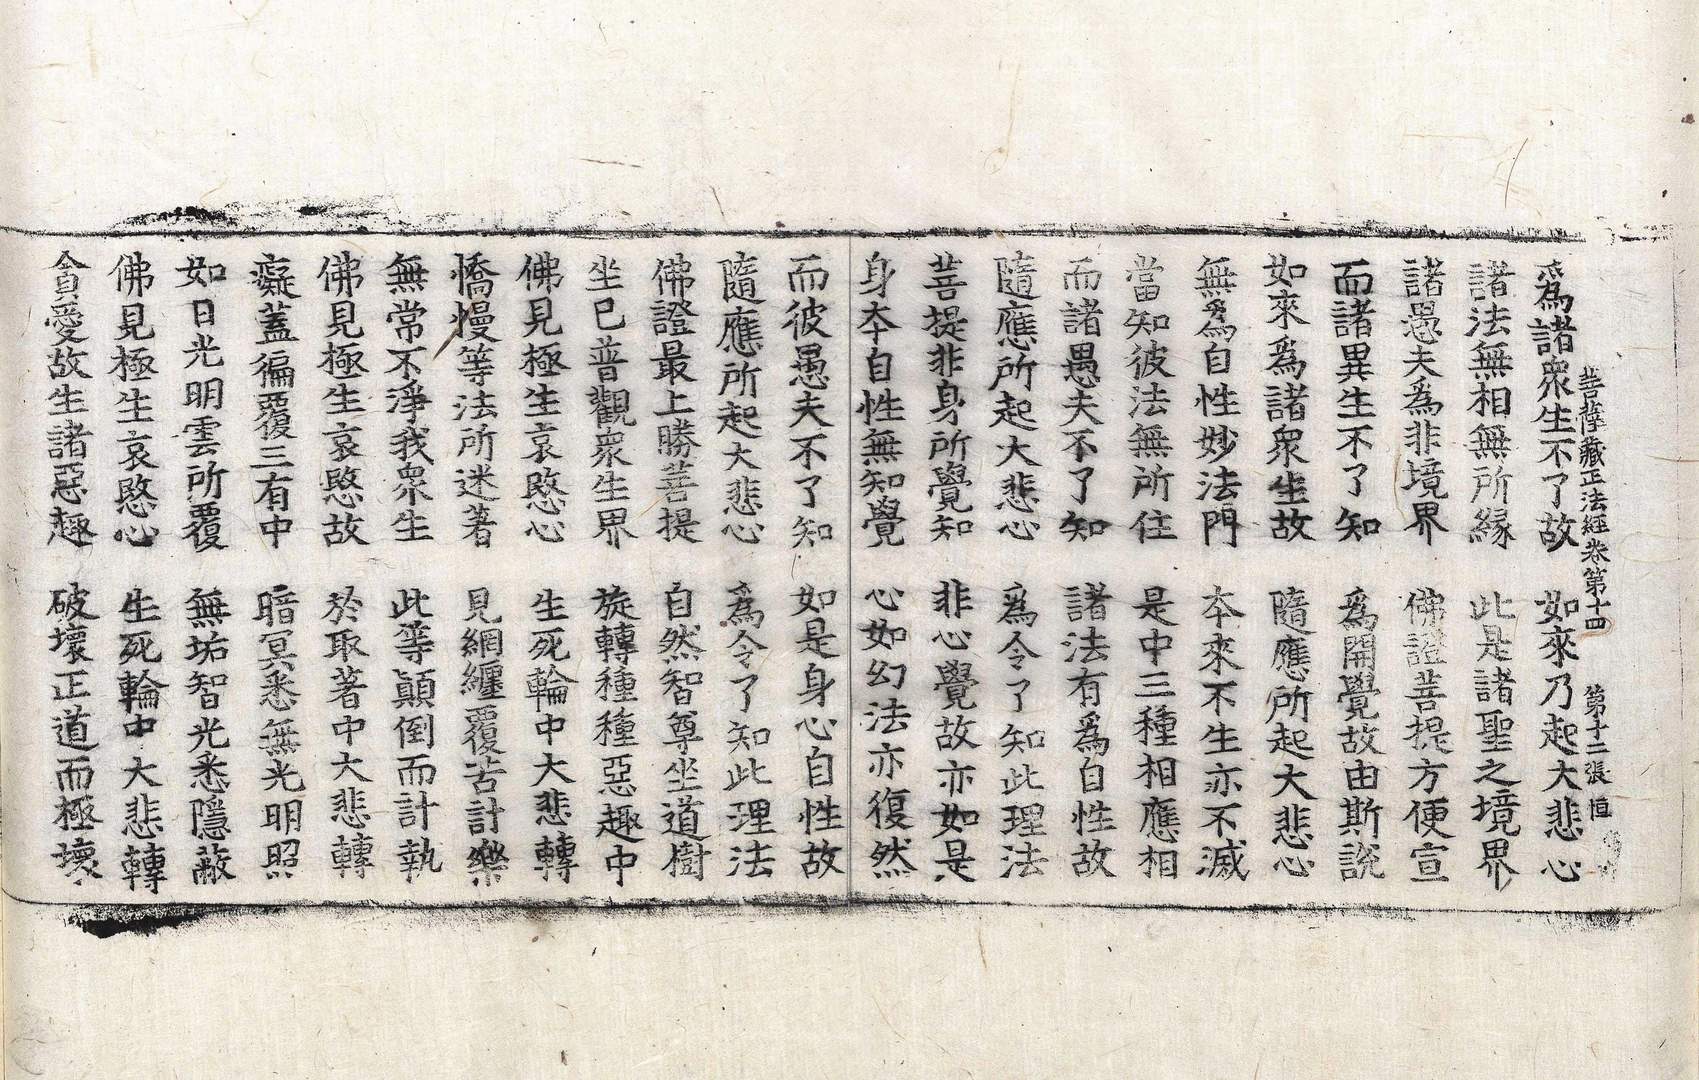 菩薩藏正法經卷第十四 第十二張 恒
爲諸衆生不了故 如來乃起大悲心
諸法無相無所緣 此是諸聖之境界
諸愚夫爲非境界 佛證菩提方便宣
而諸異生不了知 爲開覺故由斯說
如來爲諸衆生故 隨應所起大悲心
無爲自性妙法門 本來不生亦不滅
當知彼法無所住 是中三種相應相
而諸愚夫不了知 諸法有爲自性故
隨應所起大悲心 爲令了知此理法
菩提非身所覺知 非心覺故亦如是
身本自性無知覺 心如幻法亦復然
而彼愚夫不了知 如是身心自性故
隨應所起大悲心 爲令了知此理法
佛證最上勝菩提 自然智尊坐道樹
坐已普觀衆生界 旋轉種種惡趣中
佛見極生哀愍心 生死輪中大悲轉
憍慢等法所迷著 見網纏覆苦計樂
無常不淨我衆生 此等顚倒而計執
佛見極生哀愍故 於取著中大悲轉
癡蓋徧覆三有中 暗冥悉無光明照
如日光明雲所覆 無垢智光悉隱蔽
佛見極生哀愍心 生死輪中大悲轉
貪愛故生諸惡趣 破壞正道而極壞